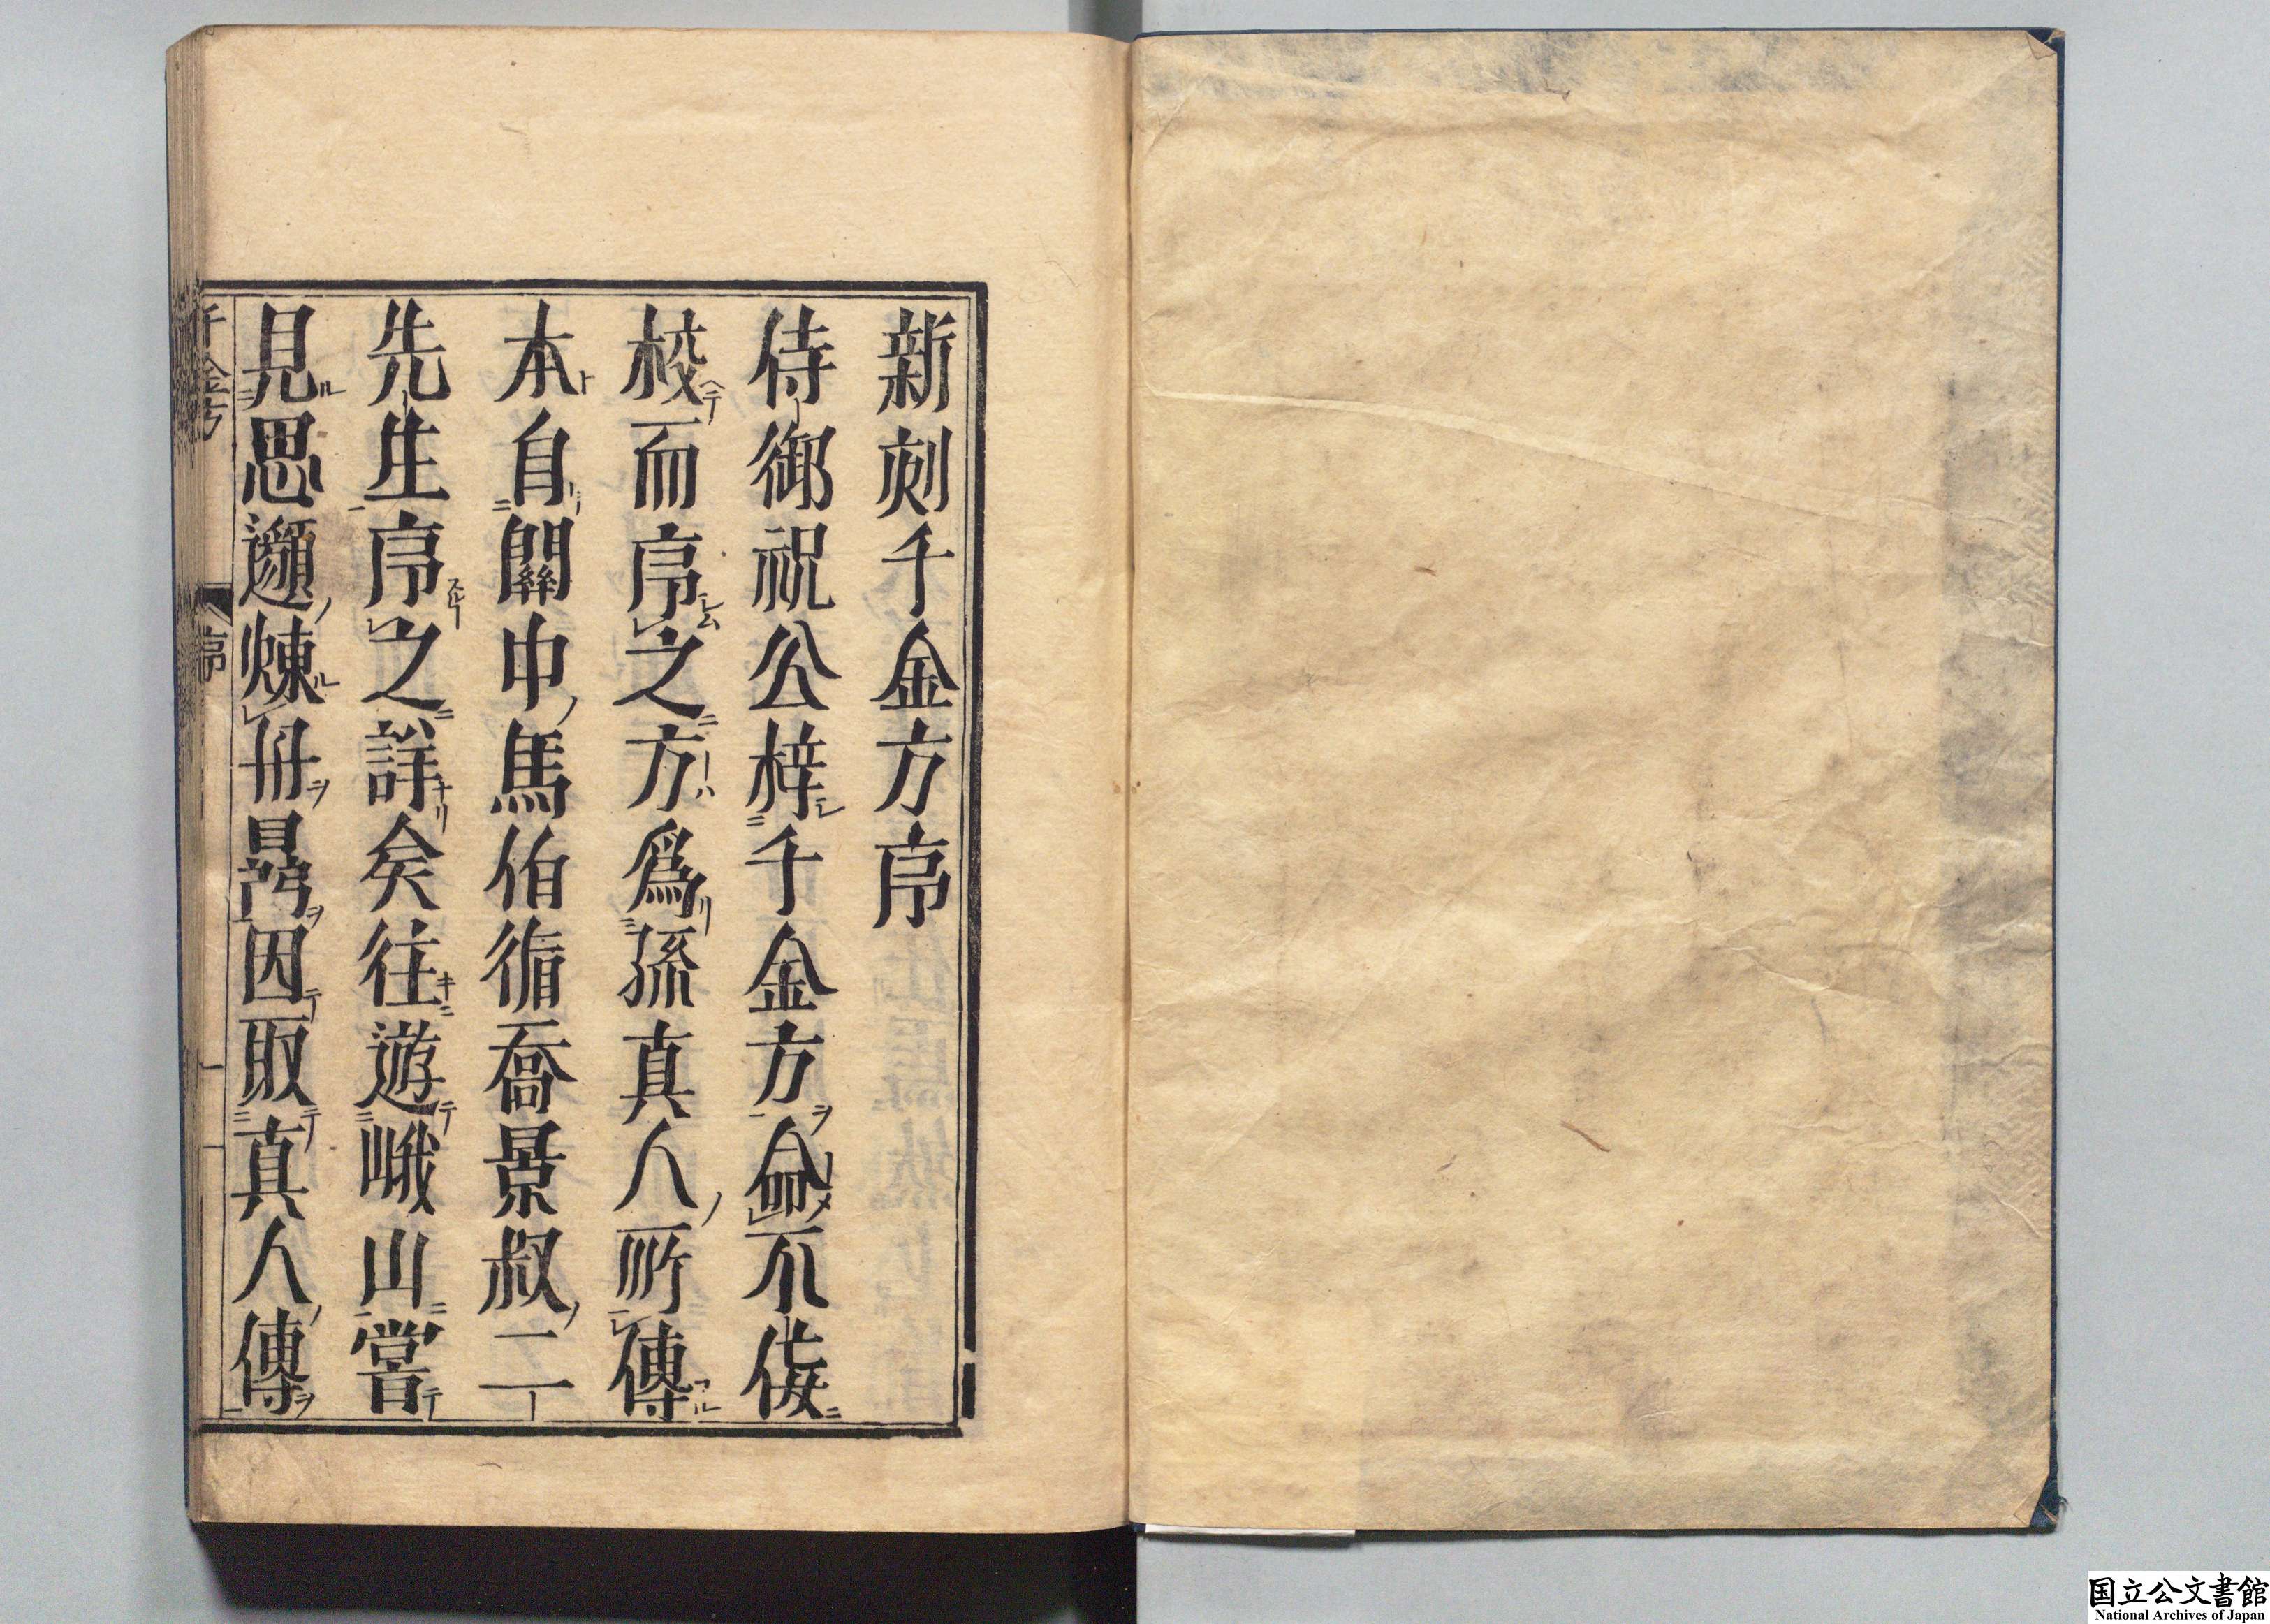 新刻千金方序
侍御祝公梓千金方命不佞
校而序之方爲孫真人所傳
本自關中馬伯循喬景叔二
先生序之詳矣往遊峨山嘗
見思邈煉丹嵒因取真人傳
千金方
序
一
国立公文書館
National Archives of Japan